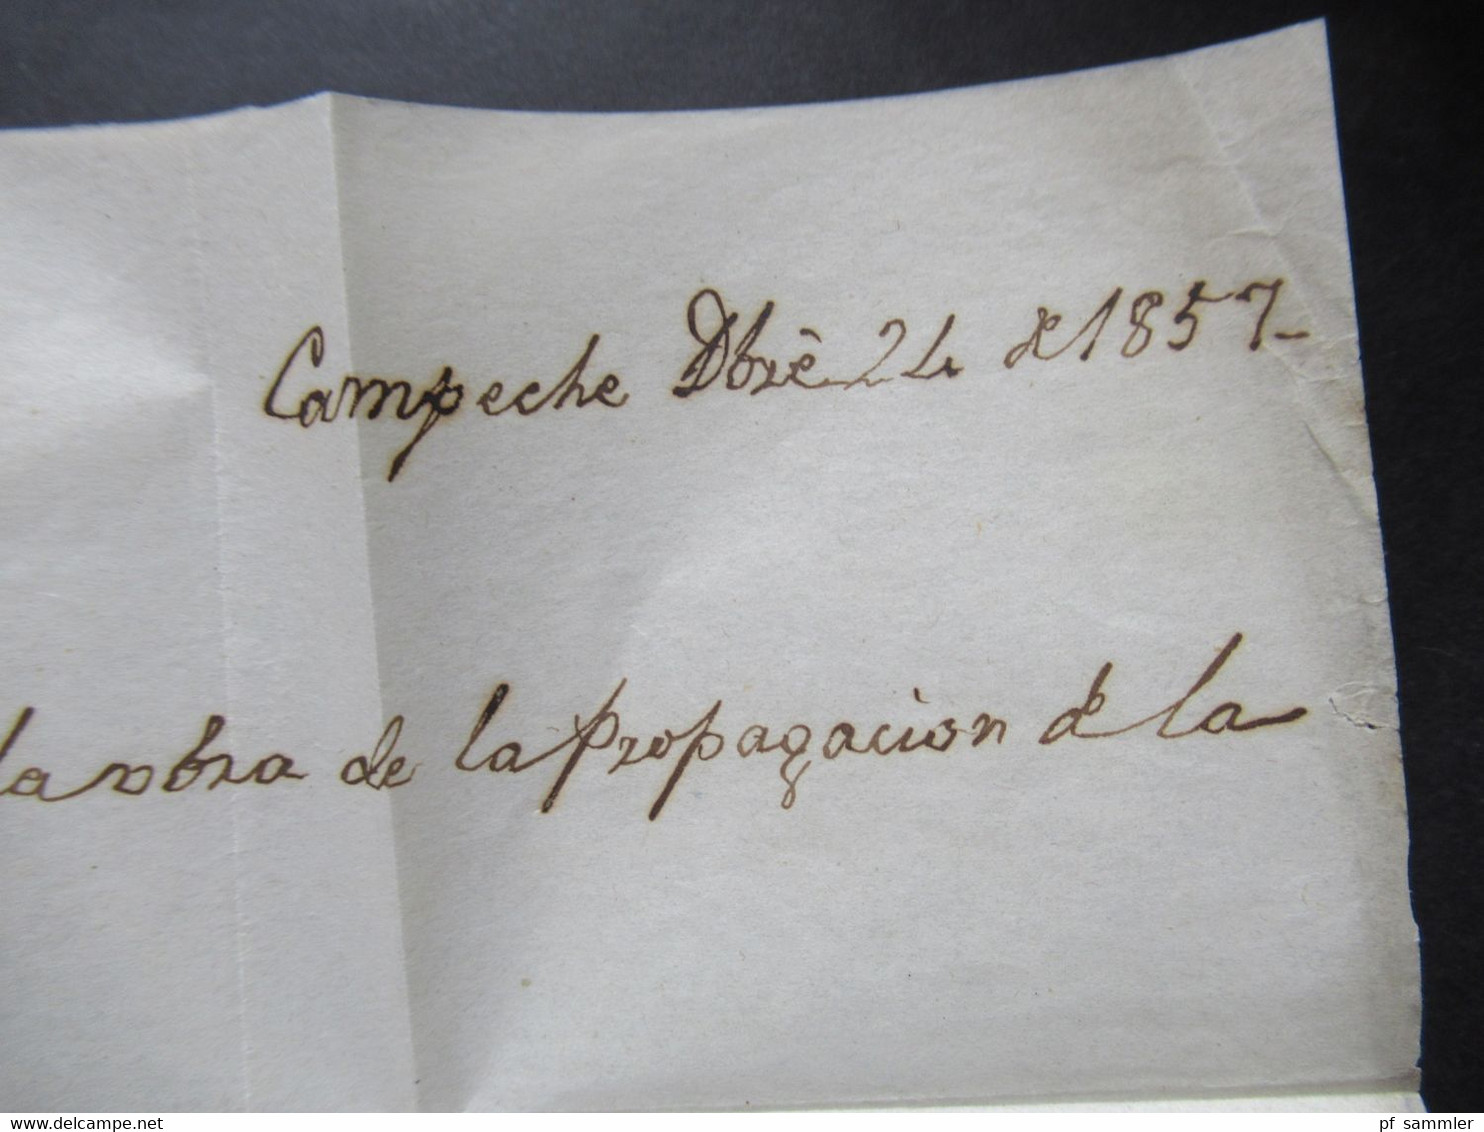 Campeche Dbrè 24 de 1857_
la obra de la propagacion de la
delcampe.net
pf_sammler